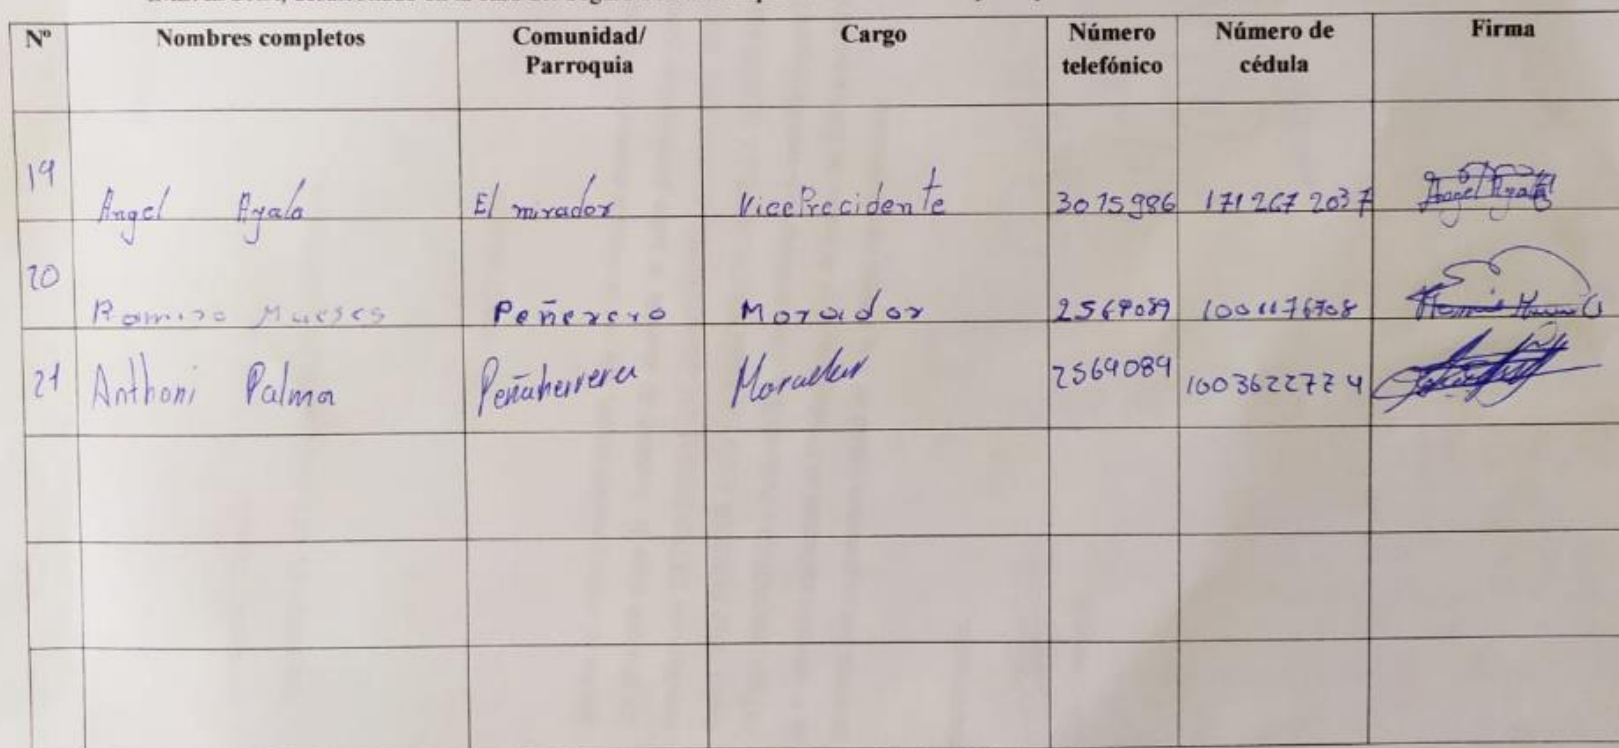 Nº Nombres completos Comunidad/ Parroquia Cargo Número telefónico Número de cédula Firma
19 Angel Ayala El mirador VicePrecidente 3015986 171267 2037 Angel Ayala
20 Ramiro Mueses Peñerero Morador
21 Anthoni Palma Peñaherrera Morador 2569089 1003622724